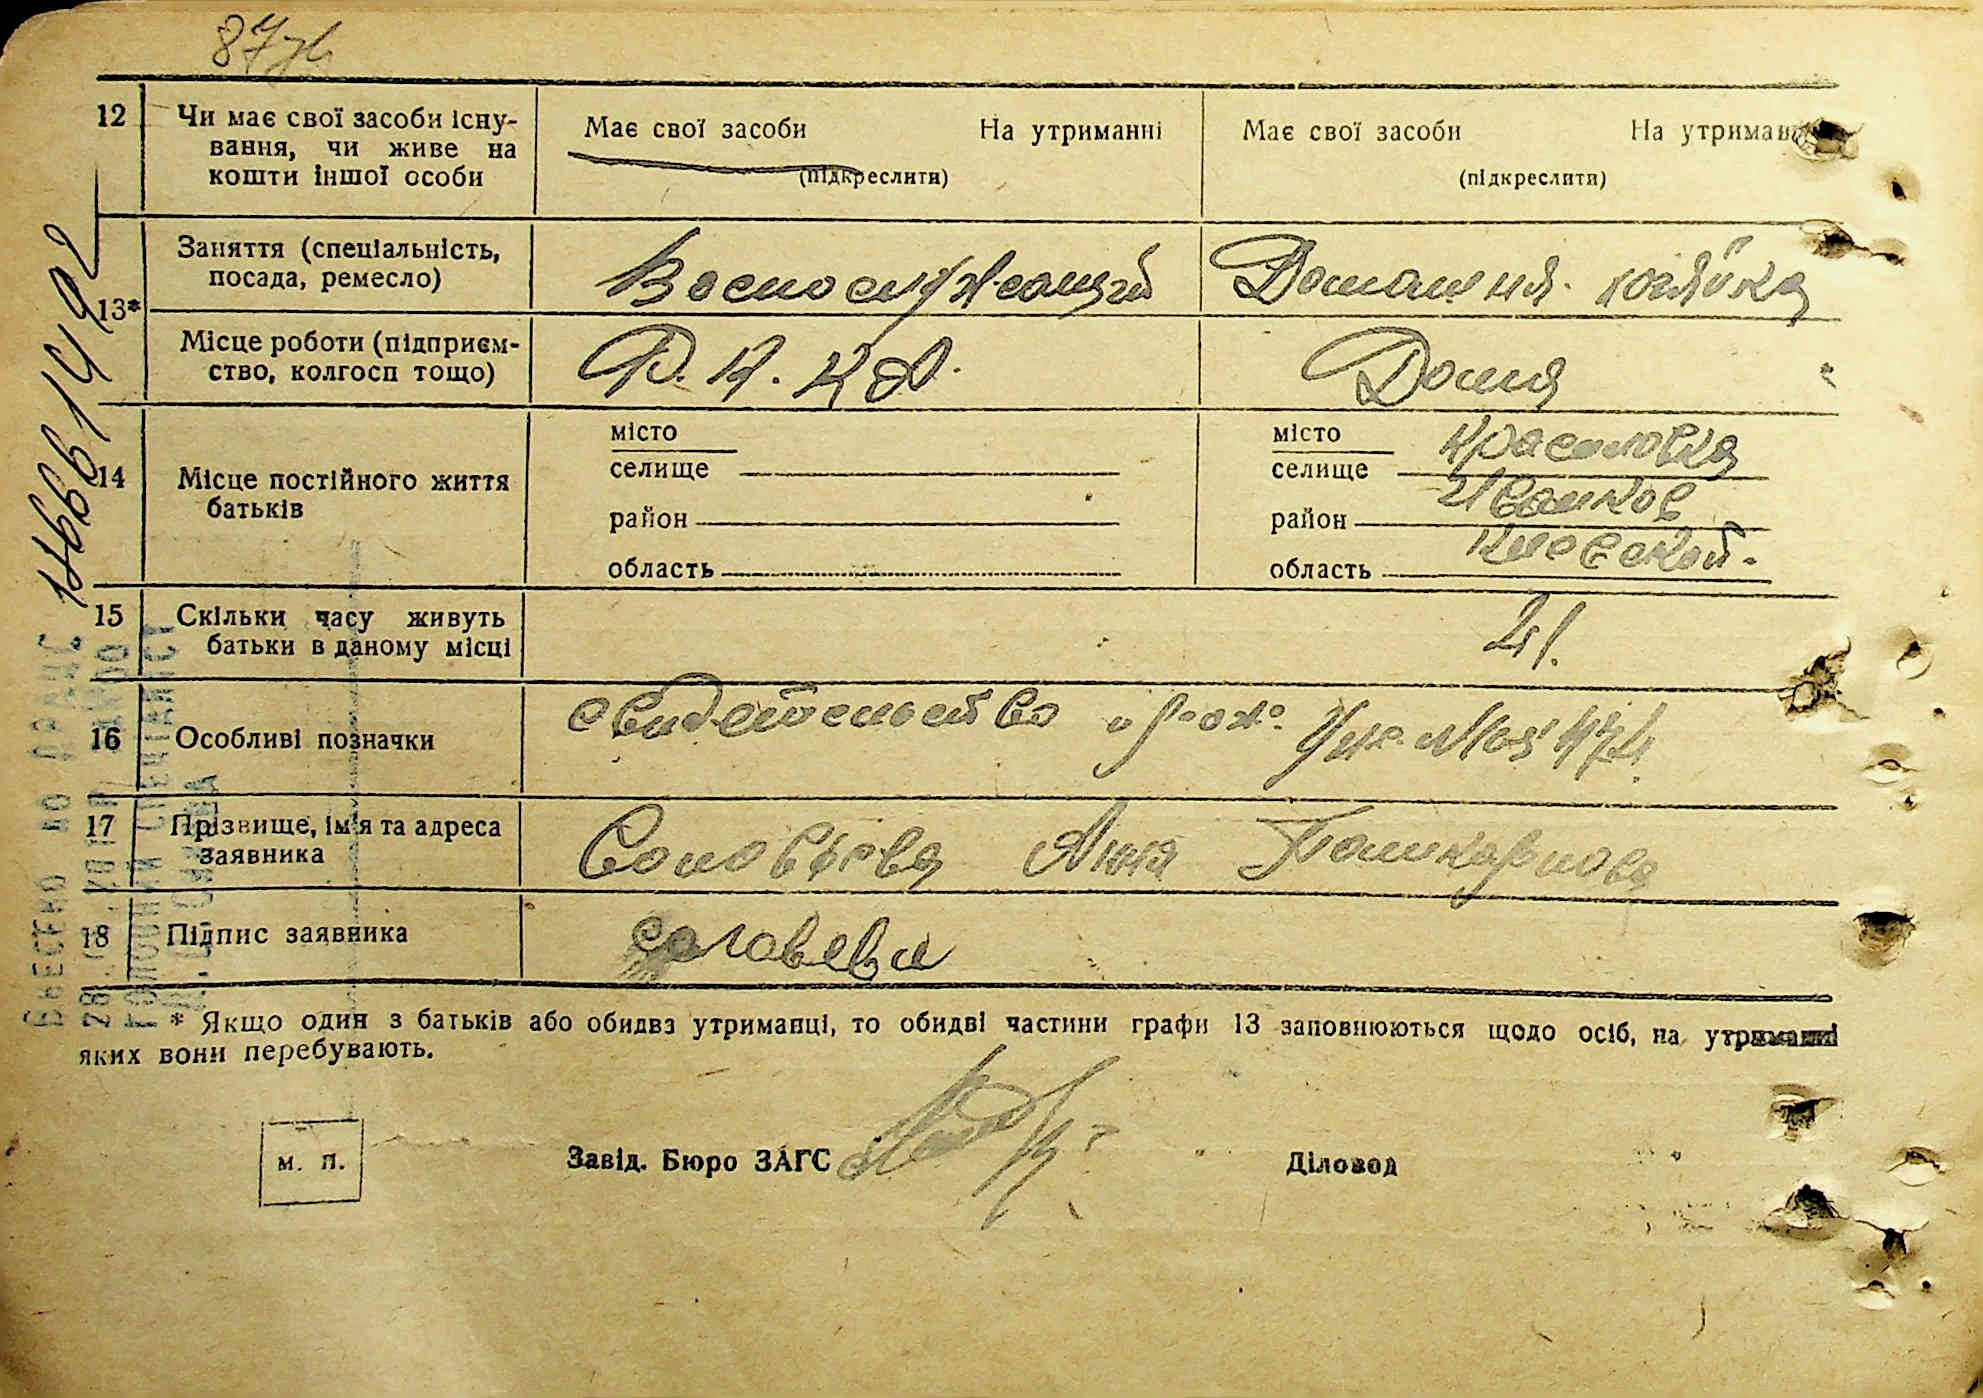 12 Чи має свої засоби існу-
вання, чи живе на
кошти іншої особи
Має свої засоби На утриманні
(підкреслити)
Має свої засоби На утриманні
(підкреслити)
13*
Заняття (спеціальність,
посада, ремесло)
Военослужащий
Домашня хозяйка
Місце роботи (підприєм-
ство, колгосп тощо)
Р. К. К А.
Дома
14 Місце постійного життя
батьків
місто
селище
район
область
місто
селище Красиловка
район Иванков
область Киевской
15 Скільки часу живуть
батьки в даному місці
16 Особливі позначки
свидетельство о рож.
17 Прізвище, ім'я та адреса
заявника
Соловьева Анна
18 Підпис заявника
Соловева
* Якщо один з батьків або обидва утриманці, то обидві частини графи 13 заповнюються щодо осіб, на утриманні
яких вони перебувають.
М. П.
Завід. Бюро ЗАГС
Діловод